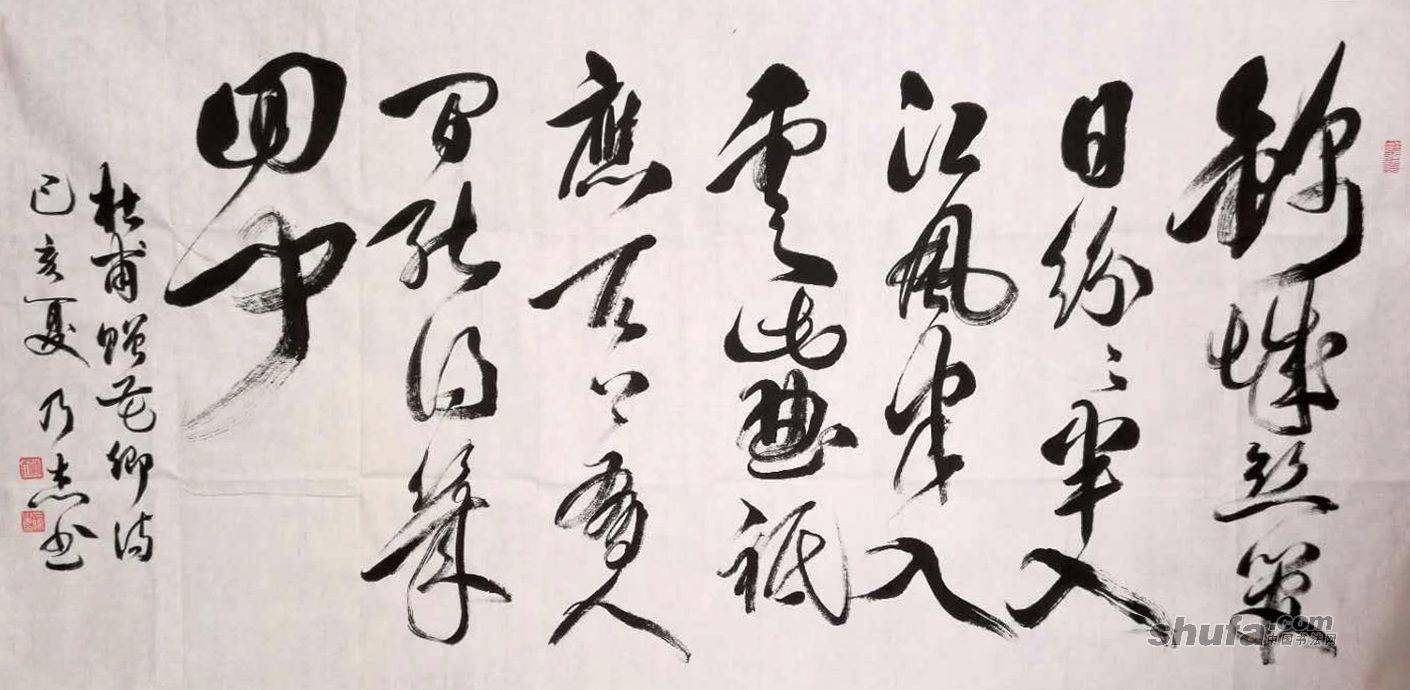 錦城丝管
日紛々半入
江風半入
雲此曲祇
應天上有人
間能得幾
回聞
杜甫贈花卿詩
己亥夏乃志书
shufa.com
中国书法网